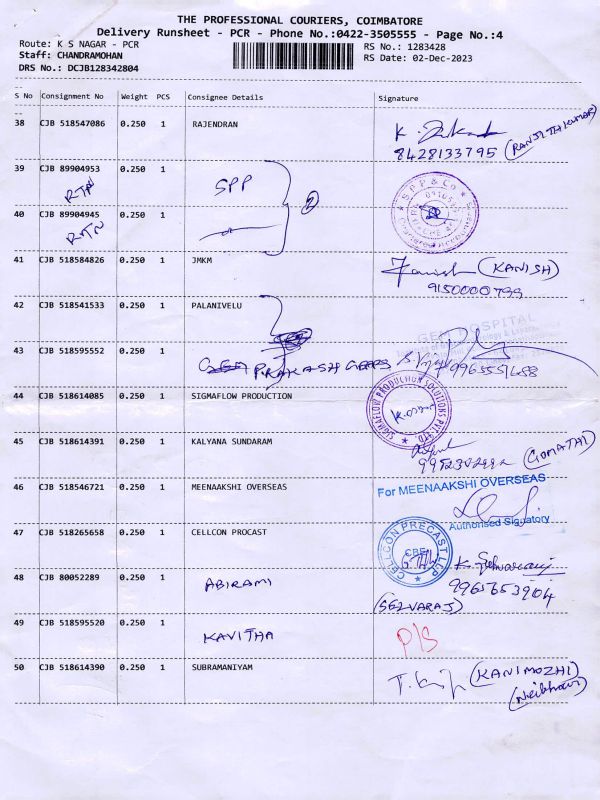 THE PROFESSIONAL COURIERS, COIMBATORE
Delivery Runsheet - PCR - Phone No.:0422-3505555 - Page No.:4
Route: K S NAGAR - PCR RS No.: 1283428
Staff: CHANDRAMOHAN RS Date: 02-Dec-2023
DRS No.: DCJB128342804
S No Consignment No Weight PCS Consignee Details Signature
38 CJB 518547086 0.250 1 RAJENDRAN
8428133795 (RANJITHKUMAR)
39 CJB 89904953 0.250 1 SPP
RTN
S P P & Co
40 CJB 89904945 0.250 1
RTN
41 CJB 518584826 0.250 1 JMKM (KANISH)
9150000799
42 CJB 518541533 0.250 1 PALANIVELU
GEM HOSPITAL
43 CJB 518595552 0.250 1 PRAKASH
44 CJB 518614085 0.250 1 SIGMAFLOW PRODUCTION
SIGMAFLOW PRODUCTION SOLUTIONS PVT. LTD.
45 CJB 518614391 0.250 1 KALYANA SUNDARAM (GOMATHI)
46 CJB 518546721 0.250 1 MEENAAKSHI OVERSEAS For MEENAAKSHI OVERSEAS
Authorised Signatory
47 CJB 518265658 0.250 1 CELLCON PROCAST
CELLCON PRECAST LLP
CBE
48 CJB 80052289 0.250 1 ABIRAMI K. Selvaraj
9965653904
(SELVARAJ)
49 CJB 518595520 0.250 1 KAVITHA P/S
50 CJB 518614390 0.250 1 SUBRAMANIYAM (KANIMOZHI)